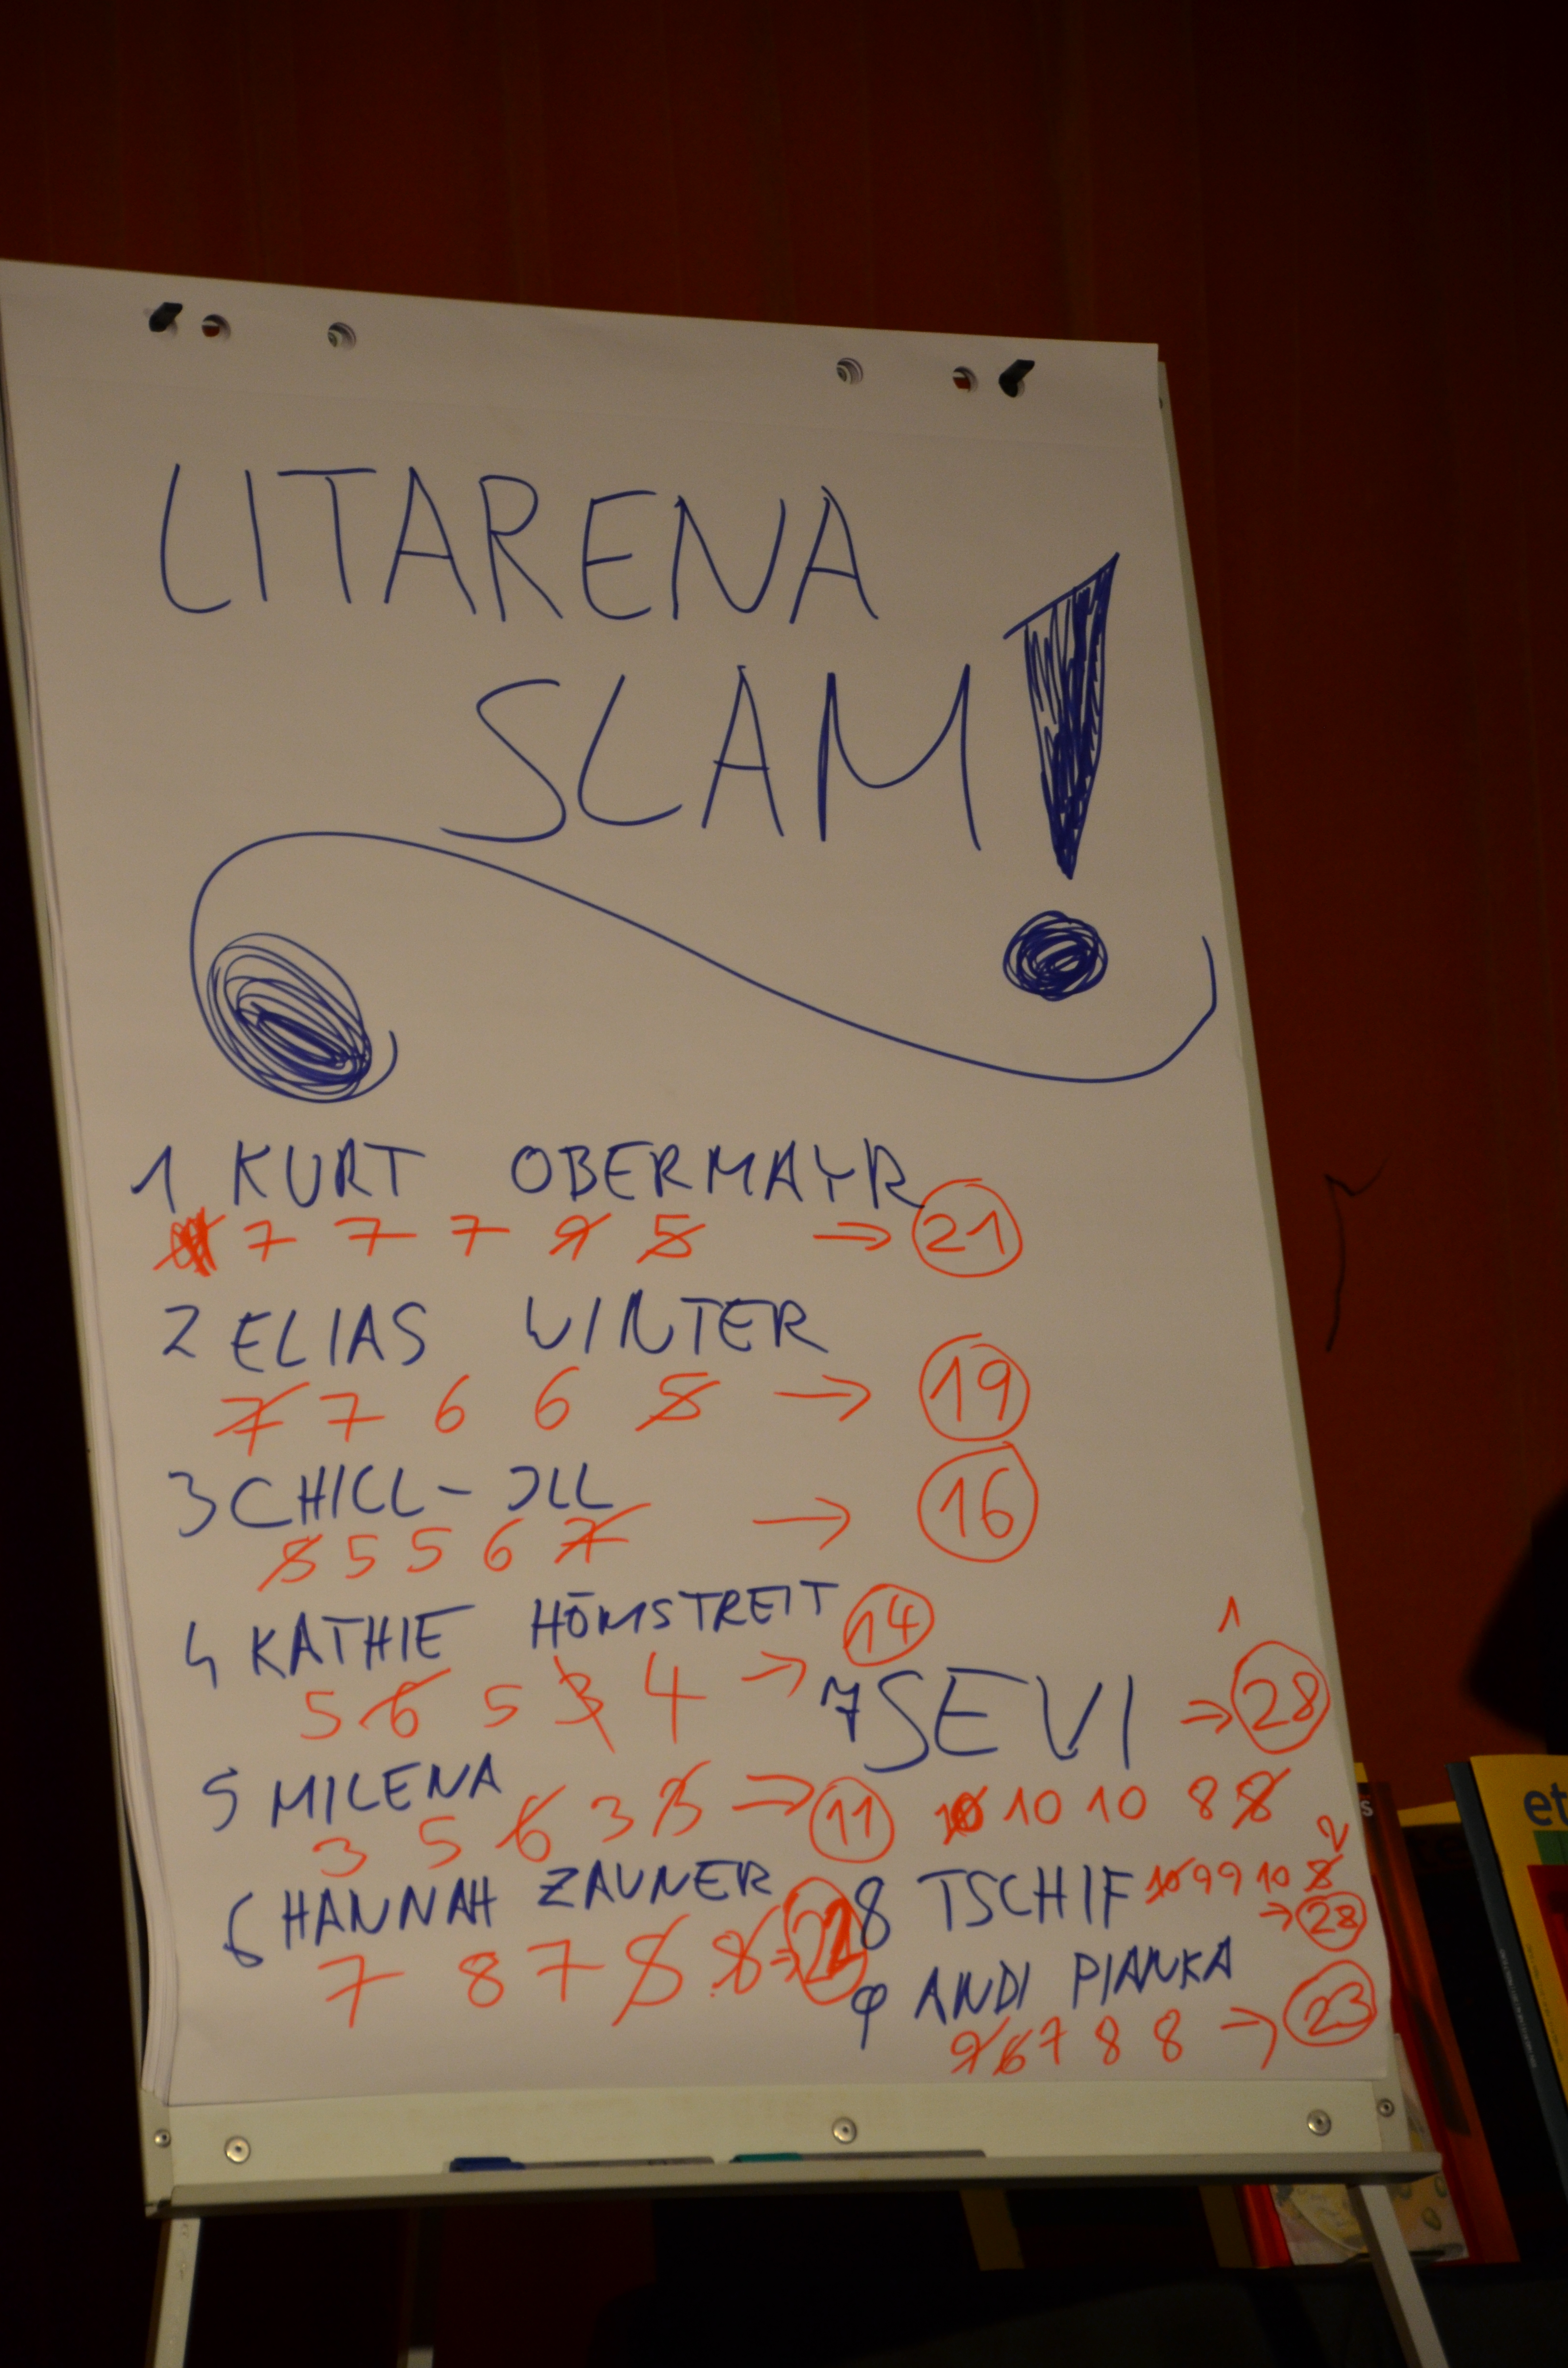 LITARENA
SLAM!
1 KURT OBERMAYR
7 7 7 9 5 → 21
2 ELIAS WINTER
7 7 6 6 5 → 19
3 CHILL-ILL
5 5 5 6 7 → 16
4 KATHIE HÖMSTREIT 14
5 6 5 3 4 →
5 MILENA
3 5 6 3 3 → 11
6 HANNAH ZAUNER
7 8 7 5 8 → 22
1
7 SEVI → 28
10 10 10 8 8
2
8 TSCHIF 10 9 9 10 8
→ 28
9 ANDI PIANKA
9 6 7 8 8 → 23
et
s